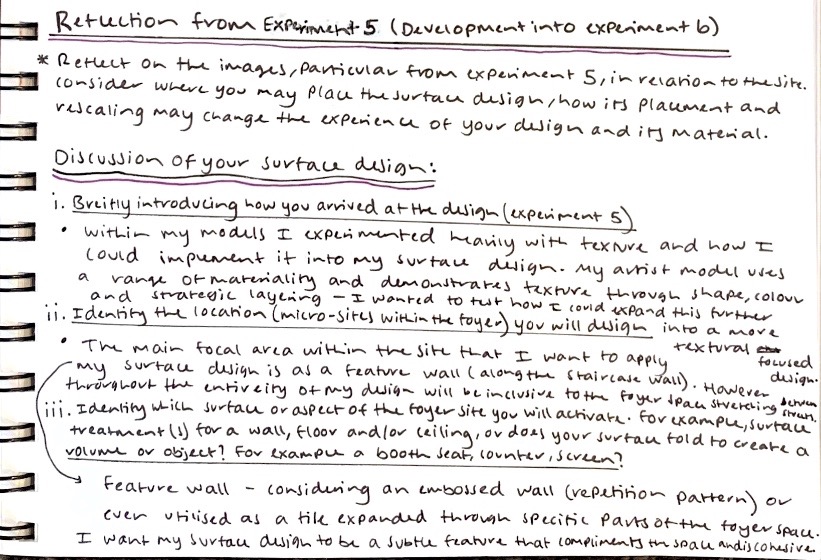 Reflection from Experiment 5 (Development into experiment 6)
* Reflect on the images, particular from experiment 5, in relation to the site.
consider where you may place the surface design, how its placement and
rescaling may change the experience of your design and its material.
Discussion of your surface design:
i. Breifly introducing how you arrived at the design (experiment 5)
• within my models I experimented heavily with texture and how I
could impument it into my surface design. My artist model uses
a range of materiality and demonstrates texture through shape, colour
and strategic layering - I wanted to test how I could expand this further
into a more
textural focused
design.
ii. Identify the location (micro-sites within the foyer) you will design
• The main focal area within the site that I want to apply
my surface design is as a feature wall (along the staircase wall). However
throughout the entireity of my design will be inclusive to the foyer space stretching
iii. Identify which surface or aspect of the foyer site you will activate. For example, surface
treatment(s) for a wall, floor and/or ceiling, or does your surface fold to create a
volume or object? For example a booth seat, counter, screen?
Feature wall - considering an embossed wall (repetition pattern) or
even utilised as a tile expanded through specific parts of the foyer space.
I want my surface design to be a subtle feature that compliments the space and is cohesive